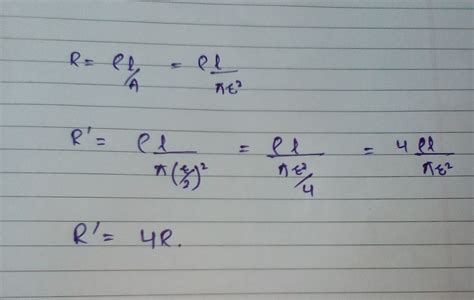 R = ρl/A = ρl/πr²
R' = ρl/π(r/2)² = ρl/πr²/4 = 4ρl/πr²
R' = 4R.